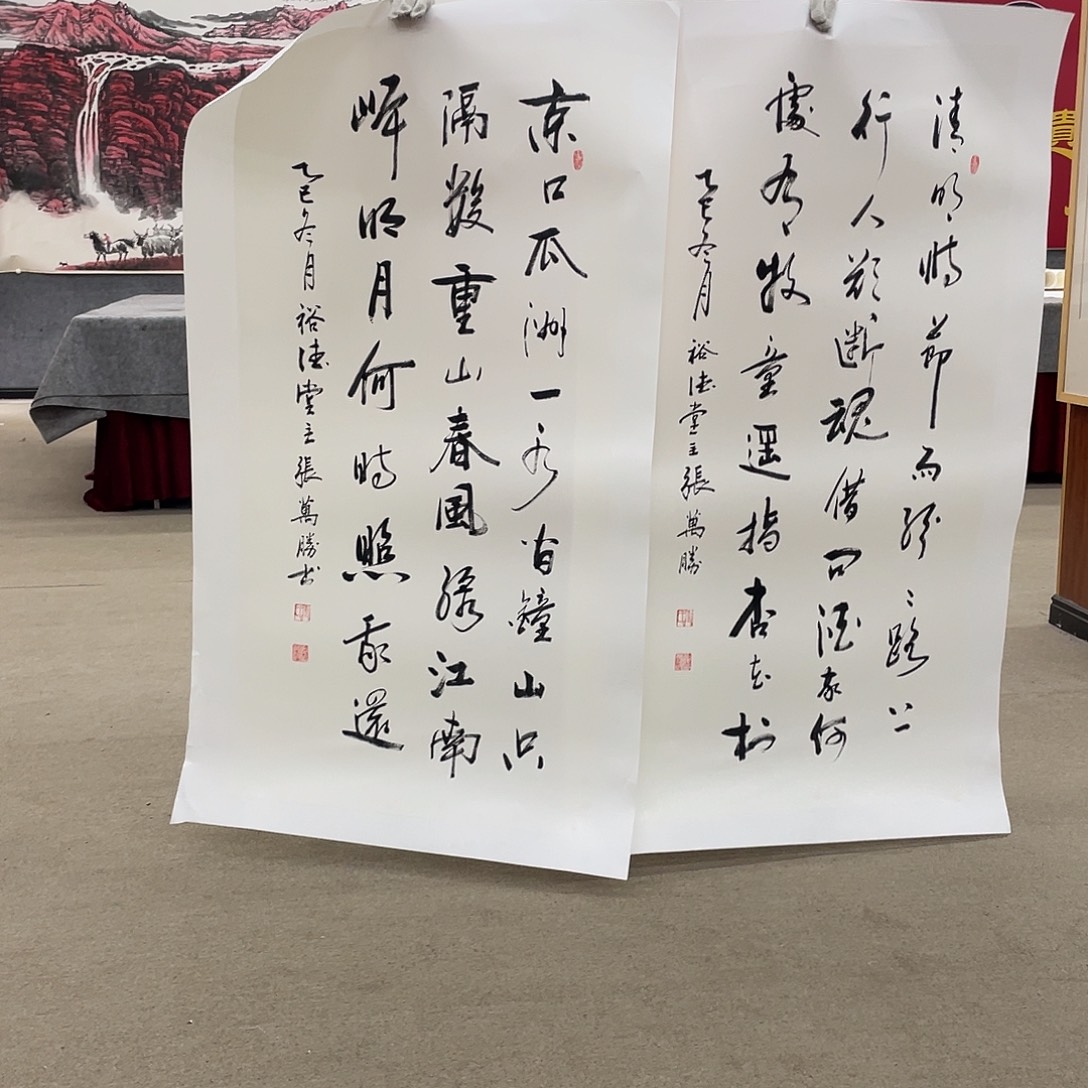 清明時節雨紛〻路上
行人欲断魂借问酒家何
處有牧童遥指杏花村
乙巳冬月 裕德堂主張萬勝
京口瓜洲一水间鐘山只
隔數重山春風绿江南
岸明月何時照我還
乙巳冬月 裕德堂主張萬勝书